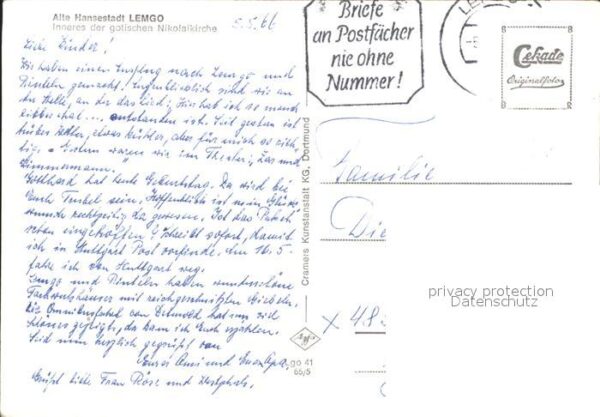 Alte Hansestadt LEMGO
Inneres der gotischen Nikolaikirche
5.5.66
Liebe Kinder!
Wir haben einen Ausflug nach Lemgo und
Rinteln gemacht. Augenblicklich sind wir an
der Stelle, an der das Lied: Hier hab ich so manch
liebes mal... entstanden ist. Seit gestern ist
trübes Wetter, etwas kühler, aber für mich so rich-
tig. Gestern waren wir im Theater, Zar und
Zimmermann.
Gotthard hat heute Geburtstag. Da wird bei
Euch Trubel sein. Hoffentlich ist mein Glück-
wunsch rechtzeitig da gewesen. Ist das Paket
schon eingetroffen? Schreibt sofort, damit
ich in Stuttgart Post vorfinde. Am 16.5.
fahre ich von Stuttgart weg.
Lemgo und Rinteln haben wunderschöne
Fachwerkhäuser mit reichgeschnitzten Giebeln.
Die Omnibusfahrt von Detmold hat uns viel
Schönes gezeigt, da kann ich Euch erzählen.
Seid nun herzlich gegrüßt von
Eurer Omi und Eurem Opa.
Grüßt bitte Frau Röse und Westphals.
Cramers Kunstanstalt KG, Dortmund
go 41
66/5
Briefe
an Postfächer
nie ohne
Nummer!
LE
Cekade
Originalfoto
Familie
Die
x 483
privacy protection
Datenschutz